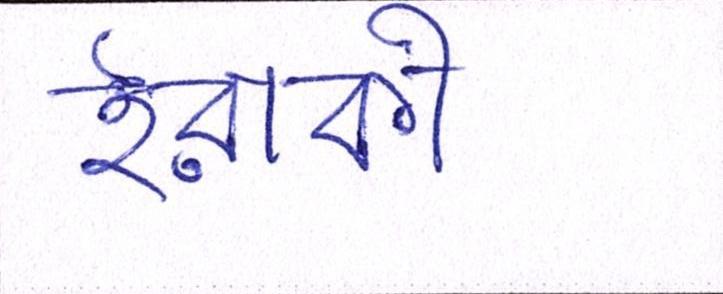 ইরাকী